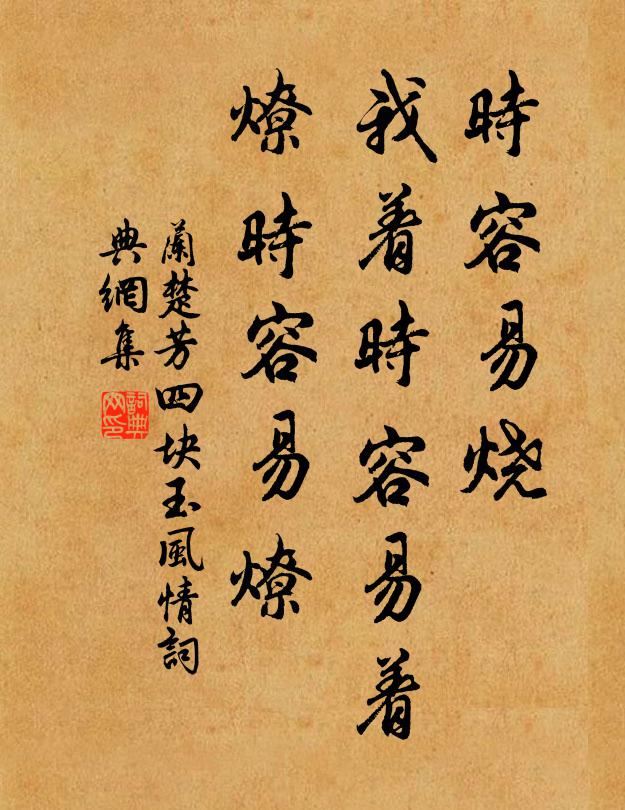 時容易烧
我着時容易着
燎時容易燎
蘭楚芳四块玉風情詞
典網集
詞典网印